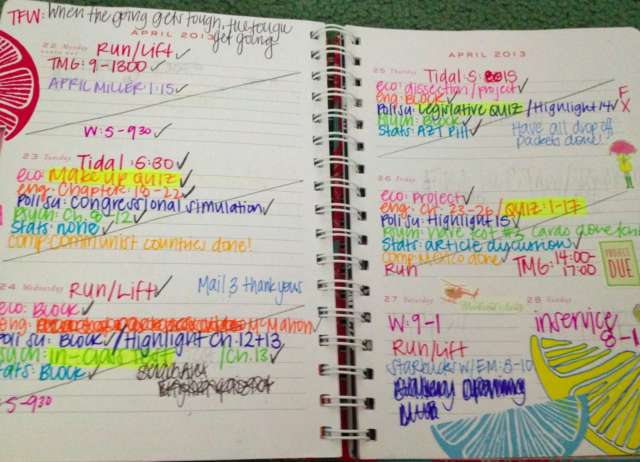 TFW: When the going gets tough, the tough get going
APRIL 2013
22 Monday
Run/Lift
TMG: 9-1300
APRIL MILLER 1:15
W: 5-930
23 Tuesday
Tidal: 5:30
eco: Make up quiz
eng: Chapter 18-22
Poli su: congressional simulation
Psych: Ch. 8-12
Stats: none
comp: communist countries done!
24
Run/Lift
Mail 3 thank yous
eco: Block
eng: McMahon
Poli su: Block / Highlight Ch. 12+13
psych: in-class test / Ch. 13
Stats: Block
5-930
APRIL 2013
25 Thursday
Tidal 5:15
eco: dissection/project
eng: Block
Poli su: Legislative QUIZ / Highlight 14
Psych: Block
Stats: AZT
Have all drop off
packets done!
26 Friday
eco: Project
eng: Ch. 23-26 / QUIZ: 1-17
Poli su: Highlight 15
Psych: Have test #3 Cards done
Stats: article discussion
comp: Mexico done
Run
TMG: 14:00-
17:00
PROJECT
DUE
27 Saturday
W: 9-1
Run/Lift
Starbucks w/EM: 8-10
28 Sunday
inservice
8-1